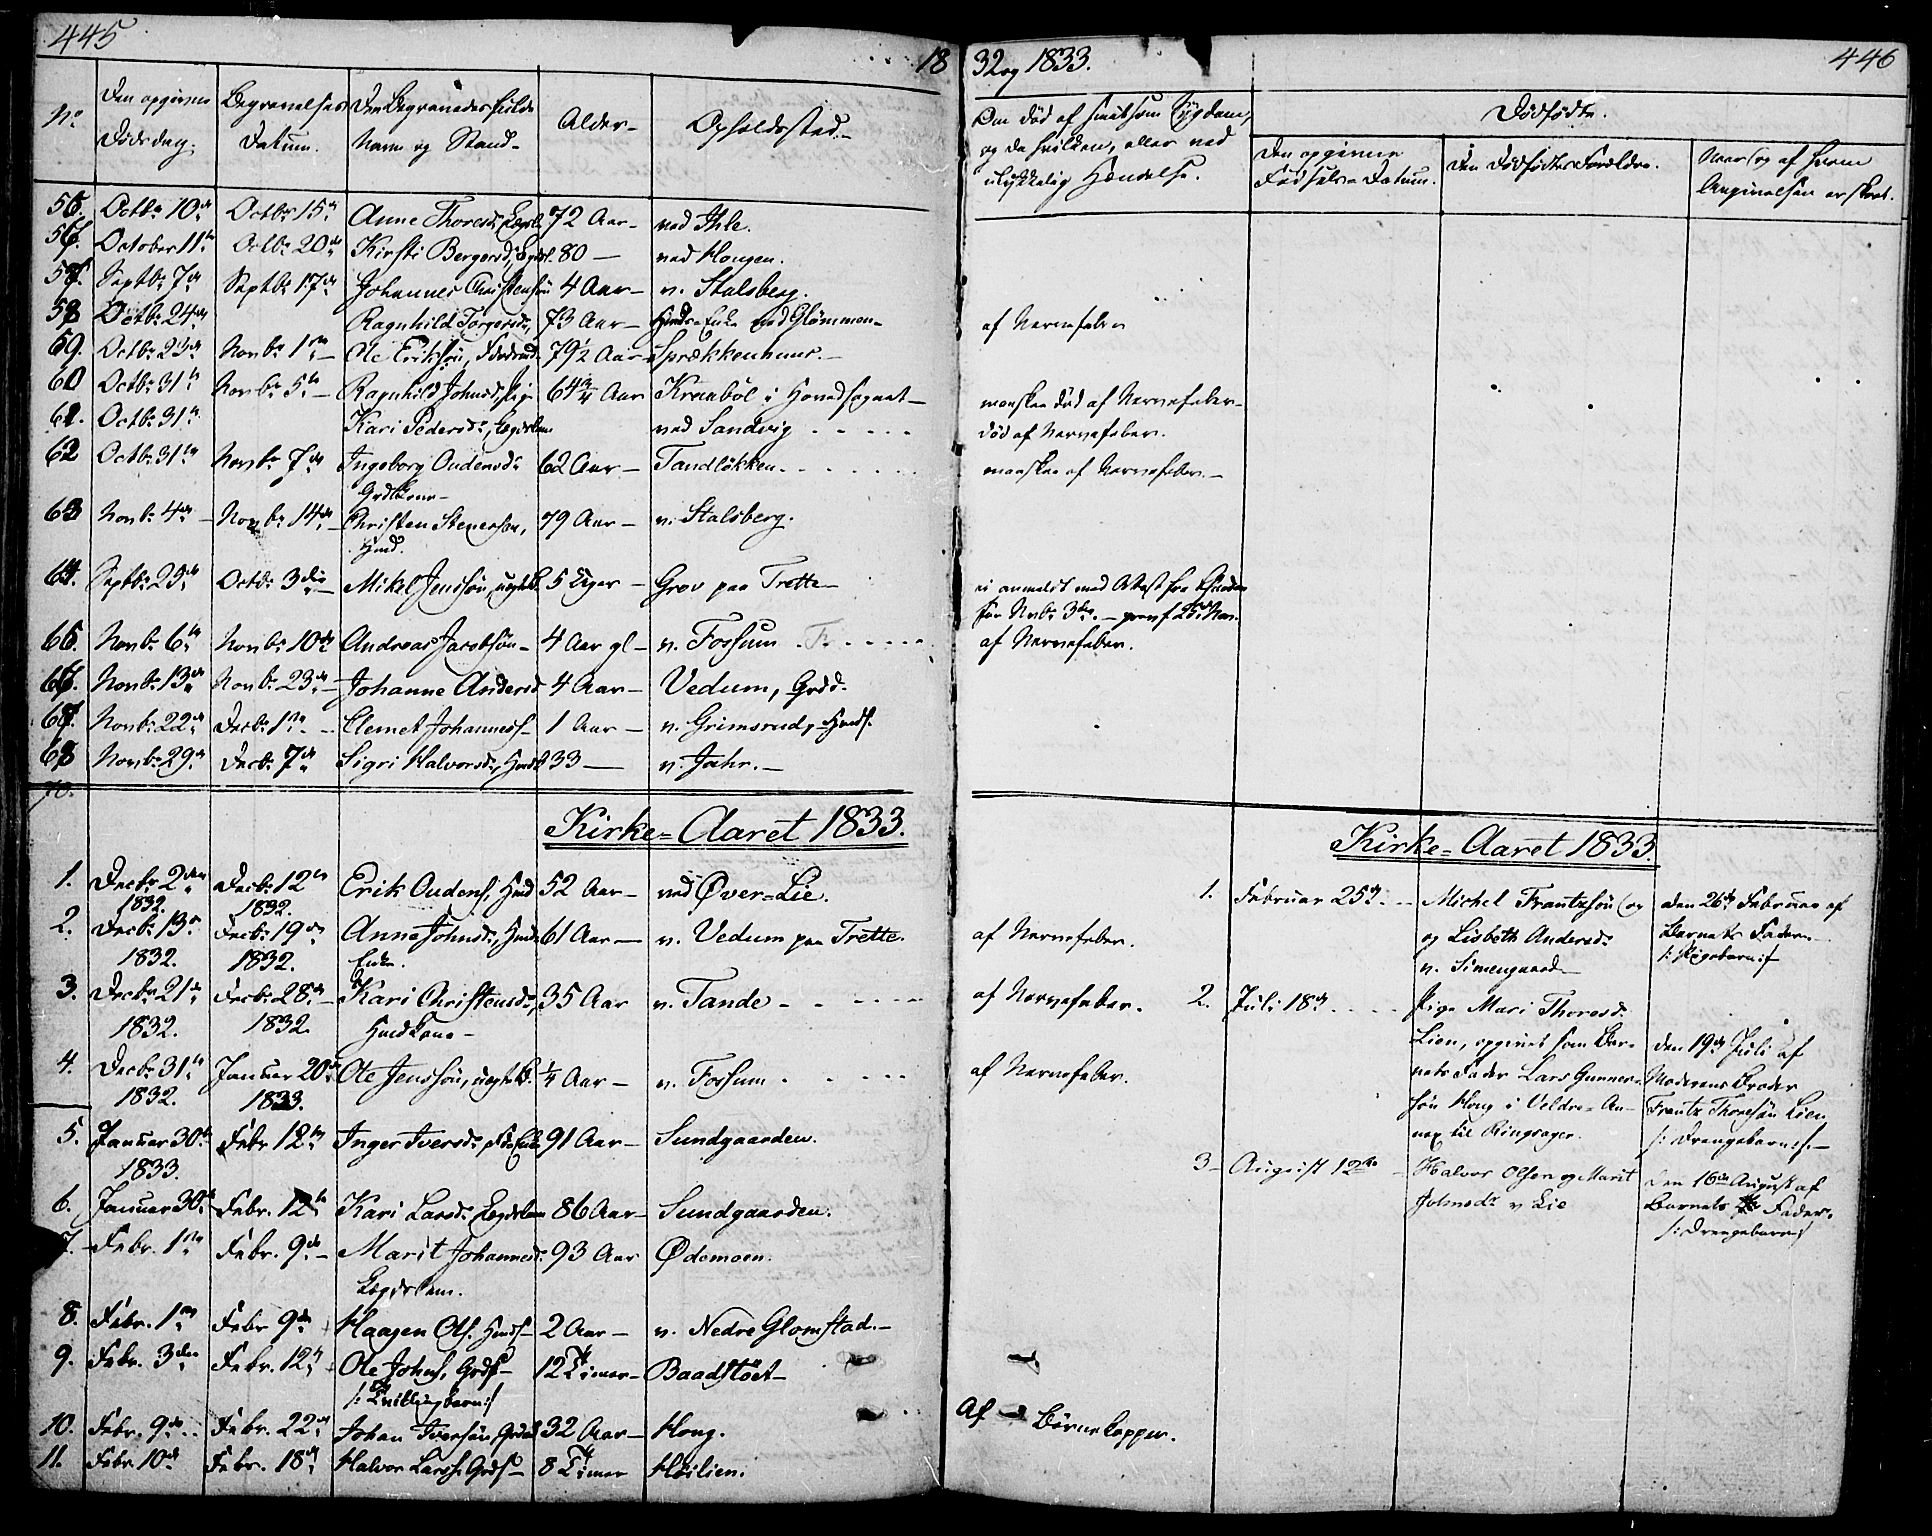 445
18
No
Den opgivne Dødsdag.
Begravelses Datum.
Den Begravedes fulde Navn og Stand.
Alder.
Opholdssted.
55. Octbr 10de Octbr 15de Anne Thoresdr, Legdsl. 72 Aar ved Ihle.
56. October 11te Octbr 20de Kirsti Bergersdr, Legdsl. 80 — ved Hougen.
57. Septbr 7de Septbr 17de Johannes Christensøn 4 Aar v. Stalsberg.
58 Octbr 24de Ragnhild Torgersdr, 73 Aar Huusm. Enke ved Glømmen
59. Octbr 23de Novbr 1ste Ole Eriksøn, Føderaad. 79½ Aar Sprækkenhuus.
60 Octbr 31te Novbr 5te Ragnhild Johnsdr, Pige 64¾ Aar Kræabøl i Hovedsognet
61. Octbr 31te Kari Pedersdr, Legdslem ved Sandvig
62 Octbr 31te Novbr 7de Ingeborg Oudensdr 62 Aar Tandløkken.
Grdkone
63 Novbr 4de Novbr 14de Christen Stenersen, 79 Aar v. Stalsberg.
Hmd.
64. Septbr 25de Octbr 3die Mikel Jenssøn, uægteb. 5 Uger Grev paa Trette
65. Novbr 6te Novbr 10de Andreas Jacobsøn 4 Aar gl v. Fossum
66. Novbr 13de Novbr 23de Johanne Andersd 4 Aar Vedum, Grdd.
67. Novbr 22de Decbr 1ste Clemet Johanness. 1 Aar v. Grimsrud, Hmds.
68 Novbr 29de Decbr 7de Sigri Halvorsdr, Hmdk 33 — v. Jahr.
Kirke-Aaret 1833.
1. Decbr 2den 1832. Decbr 12te 1832. Erik Oudens. Hmd 52 Aar ved Øver-Lie.
2. Decbr 13de 1832. Decbr 19de 1832. Anne Johnsdr, Hmds Enke. 61 Aar v. Vedum paa Trette.
3. Decbr 21de 1832. Decbr 28de 1832. Kari Christensdr, Hmdkone 35 Aar v. Tande
4. Decbr 31te 1832. Januar 20de 1833. Ole Jenssøn, uægteb. ¼ Aar v. Fossum
5. Januar 30te 1833. Febr 12te Inger Iversdr, Fdr. Enke 91 Aar Sundgaarden.
6. Januar 30te Febr. 12te Kari Larsdr Legdslem 86 Aar Sundgaarden.
7. Febr. 1ste Febr. 9de Marit Johannesd. Legdslem. 93 Aar Ødemoen.
8. Febr. 1ste Febr 9de Haagen Ols. Hmds 2 Aar v. Nedre Glomstad.
9. Febr. 3die Febr. 12te Ole Johns. Grds 12 Timer Baadstøet
/: Tvillingbarn :/
10. Febr. 9de Febr. 22de Johan Iversøn, Grdmd 32 Aar Houg.
11. Febr. 10de Febr. 18de Halvor Larss. Grds 8 Timer Høilien.
32 og 1833.
446
Om død af smitsom Sygdom, og da hvilken, eller ved ulykkelig Hændelse.
Dødfødte.
Den opgivne Fødsels-Datum.
Den Dødfødtes Forældre.
Naar og af hvem Angivelsen er skeet.
af Nervefeber
maaskee død af Nervefeber
død af Nervefeber.
maaskee af Nervefeber.
ei anmeldt med Attest fra
før Novbr 3die
af Nervefeber.
af Nervefeber.
af Nervefeber.
af Nervefeber.
Af Børnekopper.
Kirke-Aaret 1833.
1. Februar 25de Michel Frantzsøn og den 26de Februar af
og Lisbeth Andersdr Barnets Fader
v. Simengaard /: Pigebarn :/
2. Juli 18de Pige Mari Thoresdr
Lien, opgivet som Bar- den 19de Juli af
nets Fader Lars Gunner- Moderens Broder
søn Houg i Veldre-An- Frantz Thoresøn Lien
nex til Ringsager. /: Drengebarn :/
3 August 12te Halvor Olsen og Marit den 16de August af
Johnsdr v Lie Barnets Fader.
/: Drengebarn :/